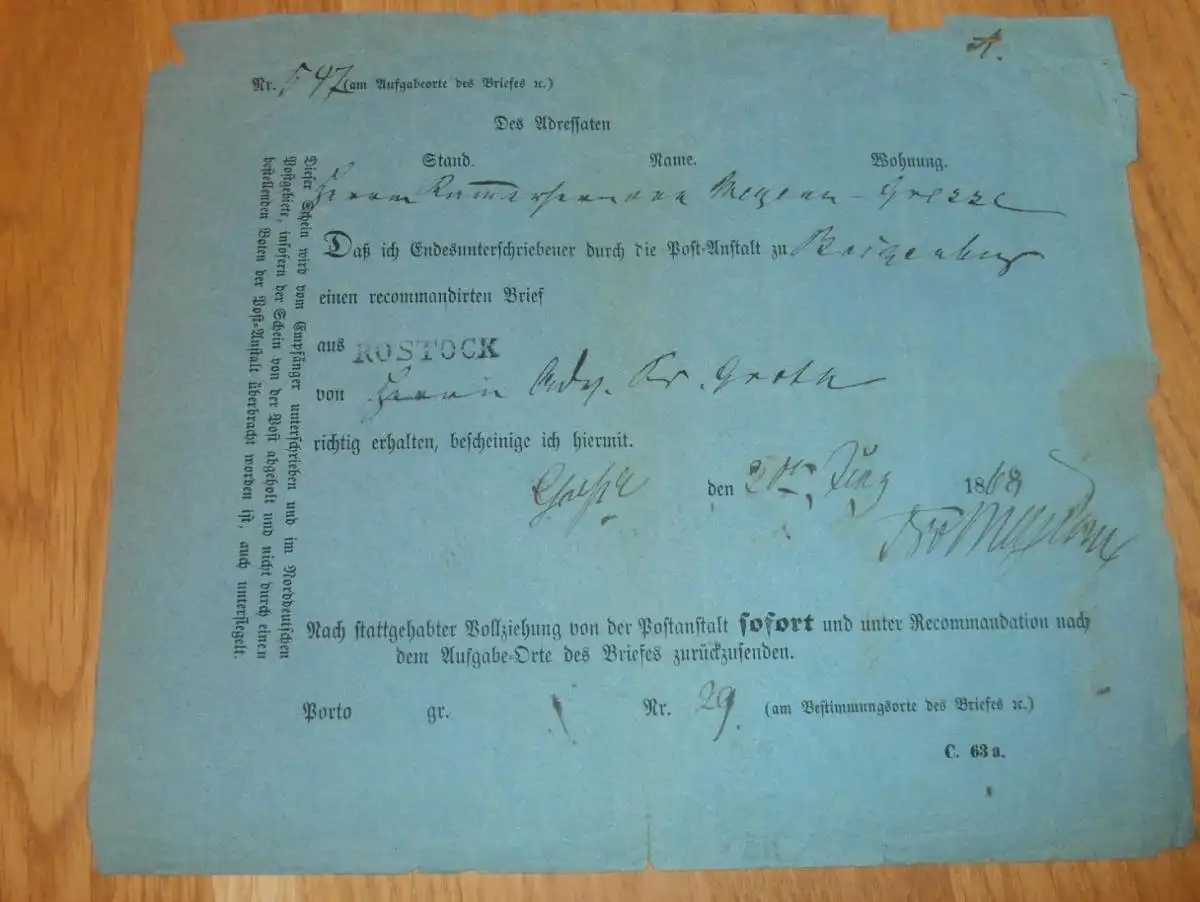 A.
Nr. 547 (am Aufgabeorte des Briefes ꝛc.)
Des Adressaten
Stand. Name. Wohnung.
Herrn
Daß ich Endesunterschriebener durch die Post-Anstalt zu
einen recommandirten Brief
aus ROSTOCK
von Herrn Adv. Dr. Groth
richtig erhalten, bescheinige ich hiermit.
den 1868
Nach stattgehabter Vollziehung von der Postanstalt sofort und unter Recommandation nach
dem Aufgabe-Orte des Briefes zurückzusenden.
Porto gr. Nr. 29. (am Bestimmungsorte des Briefes ꝛc.)
C. 63 a.
Dieser Schein wird vom Empfänger unterschrieben und im Norddeutschen
Postgebiete, insofern der Schein von der Post abgeholt und nicht durch einen
bestellenden Boten der Post-Anstalt überbracht worden ist, auch untersiegelt.